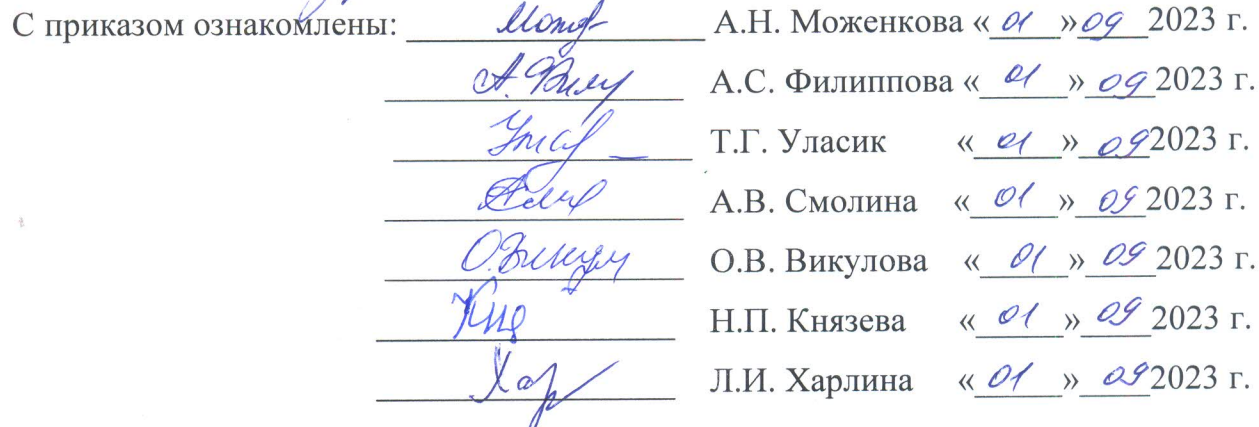 С приказом ознакомлены: А.Н. Моженкова «01» 09 2023 г.
А.С. Филиппова «01» 09 2023 г.
Т.Г. Уласик «01» 09 2023 г.
А.В. Смолина «01» 09 2023 г.
О.В. Викулова «01» 09 2023 г.
Н.П. Князева «01» 09 2023 г.
Л.И. Харлина «01» 09 2023 г.